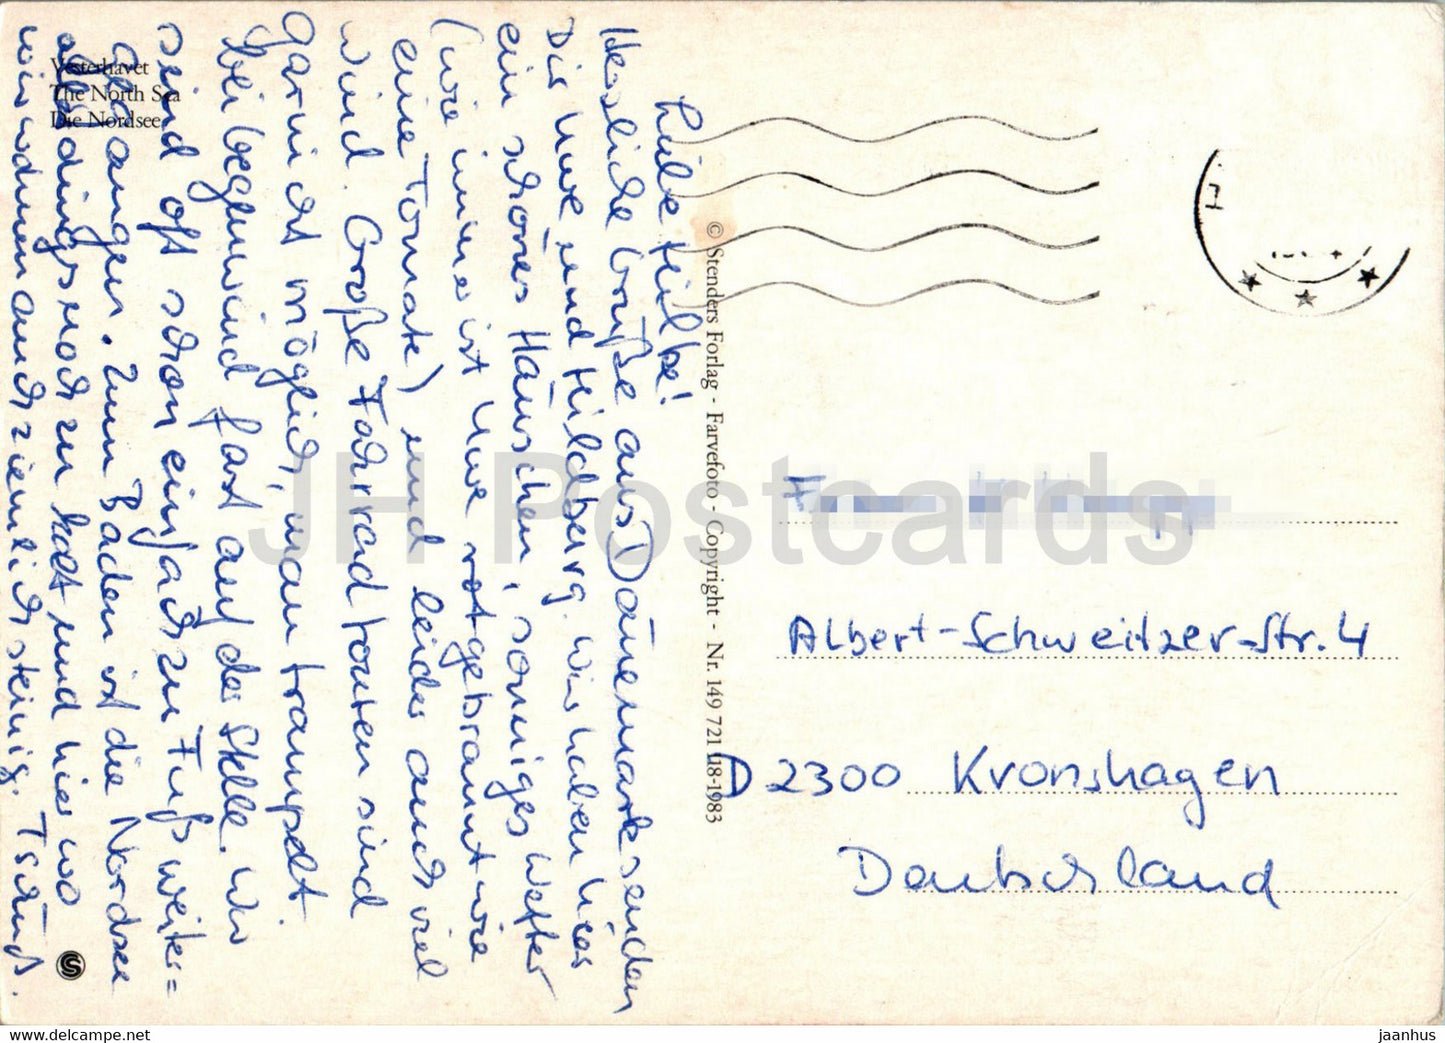 Liebe Heilke!
Herzliche Grüße aus Dänemark senden
Dir Uwe und Hildburg. Wir haben hier
ein schönes Häuschen, sonniges Wetter
(wie immer ist Uwe rotgebrannt wie
eine Tomate) und leider auch viel
Wind. Große Fahrradtouren sind
garnicht möglich, man trampelt
bei Gegenwind fast auf der Stelle. Wir
sind oft schon einfach zu Fuß weiter=
gegangen. Zum Baden ist die Nordsee
allerdings noch zu kalt und hier wo
wir wohnen auch ziemlich steinig. Tschüß.
Vesterhavet
The North Sea
Die Nordsee
© Stenders Forlag - Farvefoto - Copyright - Nr. 149 721 U8-1983
Albert-Schweitzer-Str. 4
D 2300 Kronshagen
Deutschland
JH Postcards
https://www.delcampe.net
jaanhus